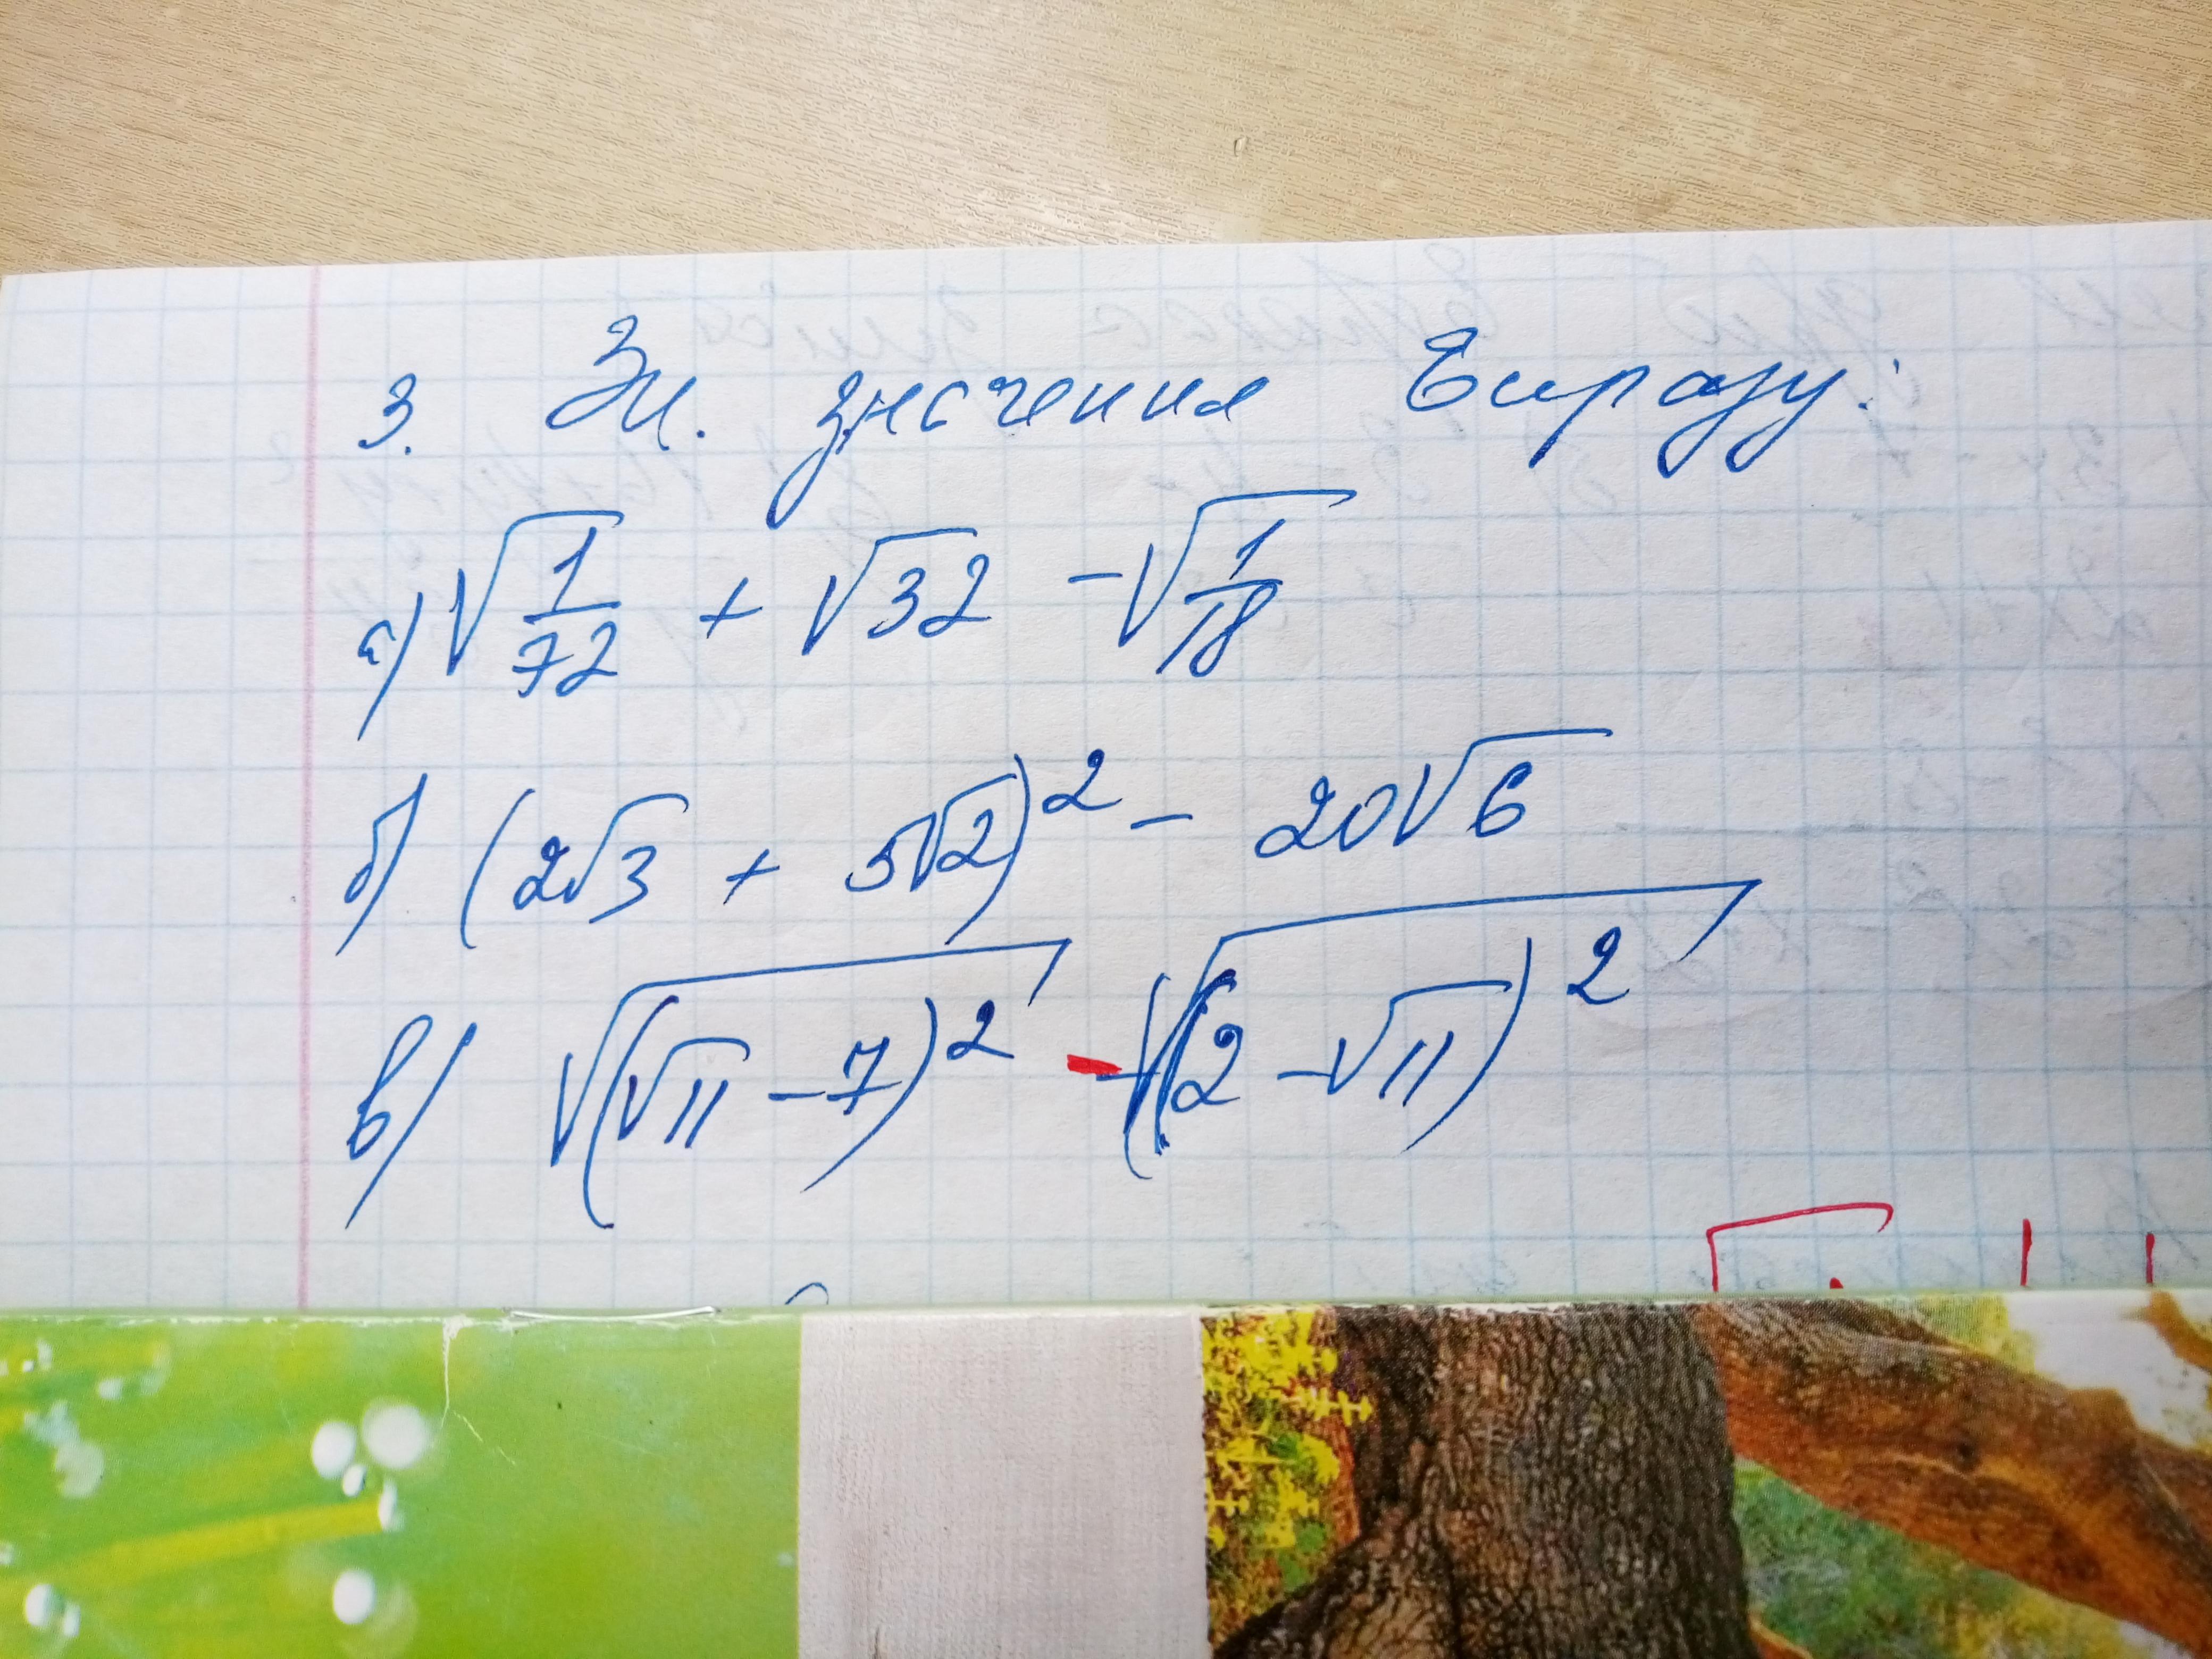 3. Зн. значення виразу:
а) √(1/72) + √32 - √(1/18)
б) (2√3 + 5√2)² - 20√6
в) √((√11 - 7)²) - √((2 - √11)²)